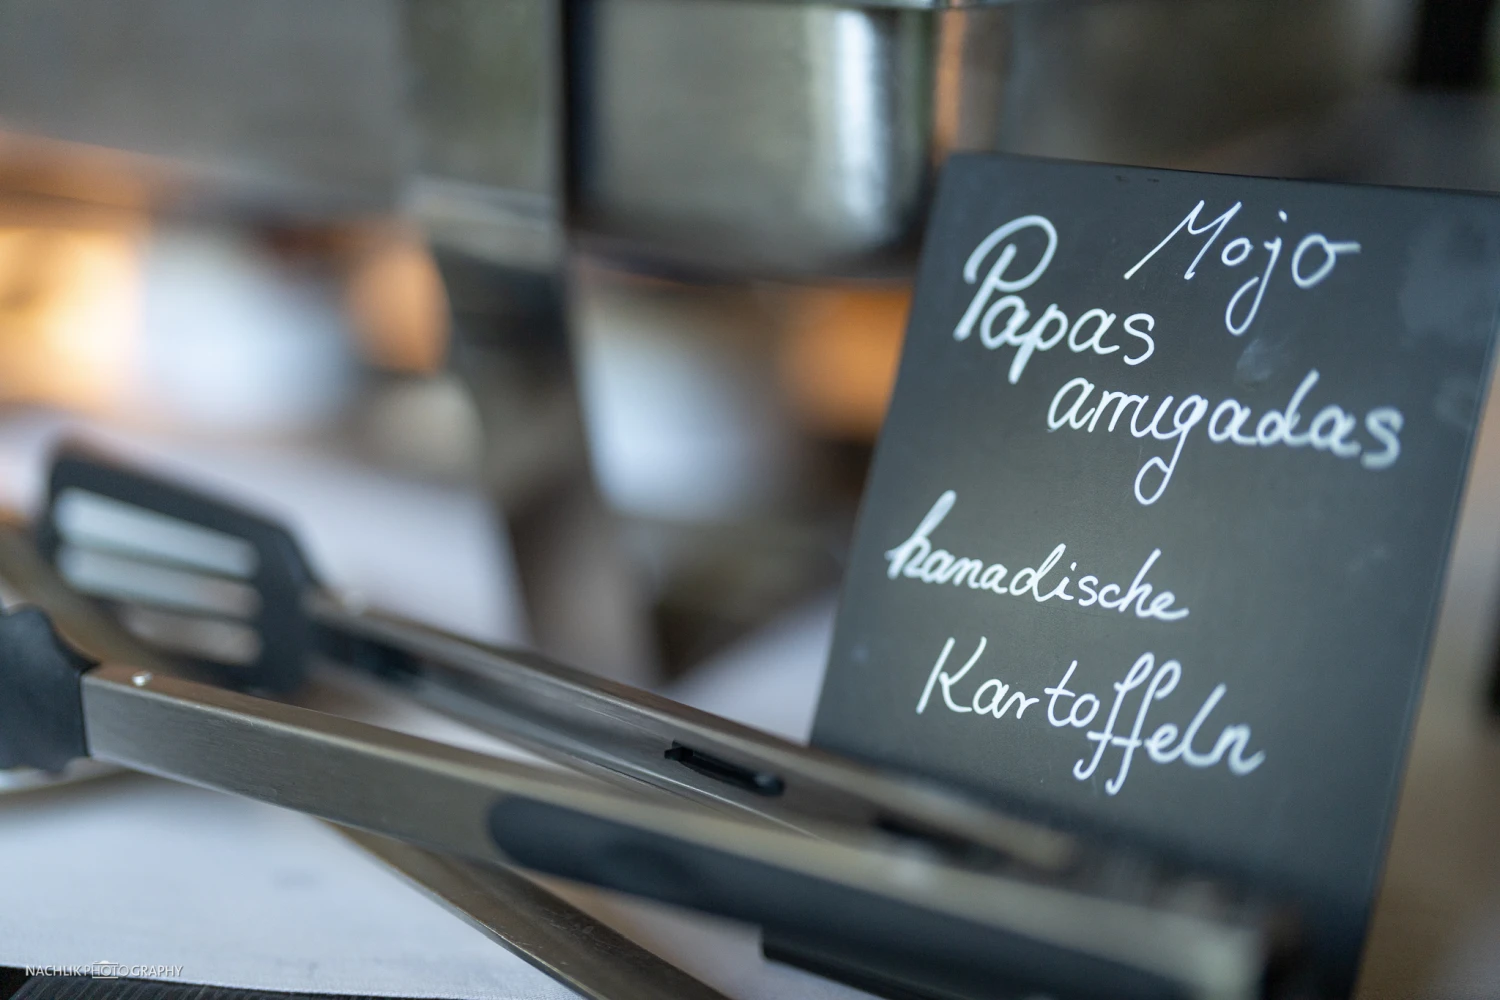 Mojo
Papas
arrugadas
kanadische
Kartoffeln
NACHLIK PHOTOGRAPHY